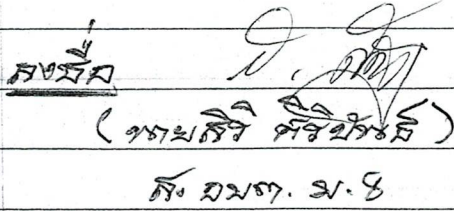 ลงชื่อ
(นายสิริ คีรีบันธ์)
ส. อบต. ม. 8